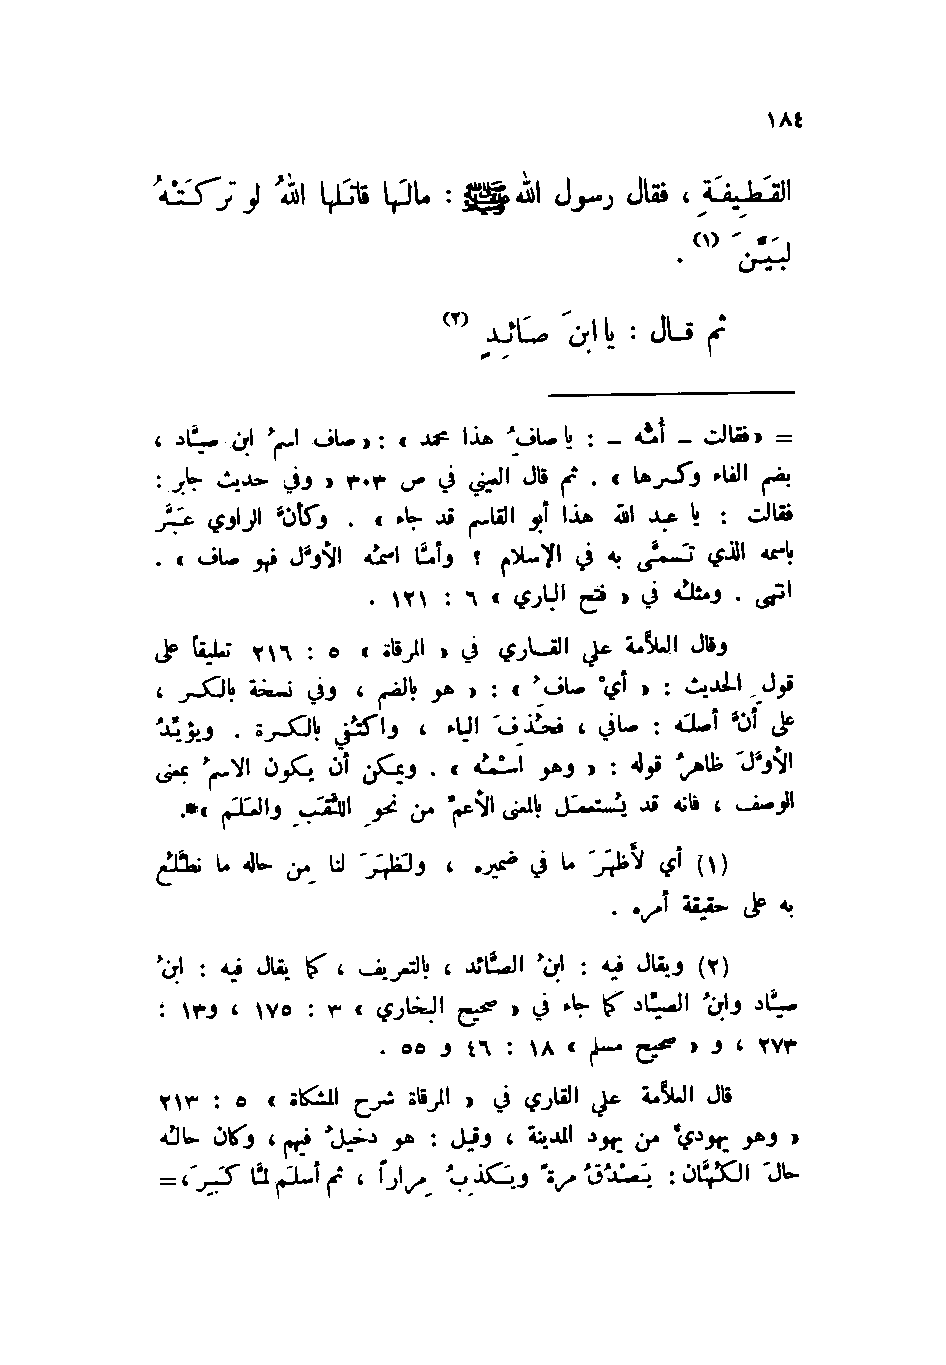 ١٨٤
القَطِيفَةِ ، فقال رسول الله ﷺ : مالَها قاتَلها اللهُ لو تركَتْهُ
لبَيَّنَ (١) .
ثم قال : يا ابنَ صَائدٍ (٢)
= « فقالت ـ أمُّه ـ : يا صافُِ هذا محمد » : « صاف اسمُ ابن صيَّاد ،
بضم الفاء وكسرها » . ثم قال العيني في ص ٣٠٣ « وفي حديث جابر :
فقالت : يا عبد الله هذا أبو القاسم قد جاء » . وكأنَّ الراوي عَبَّر
باسمه الذي تَسمَّى به في الإسلام ؟ وأمَّا اسمُه الأوَّل فهو صاف » .
انتهى . ومثلُه في « فتح الباري » ٦ : ١٢١ .
وقال العلاَّمة علي القاري في « المرقاة » ٥ : ٢١٦ تعليقاً على
قولِ الحديث : « أيْ صافُِ » : « هو بالضم ، وفي نسخة بالكسر ،
على أنَّ أصلَه : صافي ، فحُذِفَ الياء ، واكتُفي بالكسرة . ويؤيِّدُ
الأوَّلَ ظاهرُ قوله : « وهو اسْمُه » . ويمكن أن يكون الاسمُ بمعنى
الوصف ، فانه قد يُستعمَل بالمعنى الأعمِّ من نحوِ اللَّقَبِ والعَلَم »*.
(١) أي لأَظهَرَ ما في ضميره ، ولَظهَرَ لنا مِن حاله ما نطَّلِعُ
به على حقيقة أمره .
(٢) ويقال فيه : ابنُ الصَّائد ، بالتعريف ، كما يقال فيه : ابنُ
صيَّاد وابنُ الصيَّاد كما جاء في « صحيح البخاري » ٣ : ١٧٥ ، و١٣ :
٢٧٣ ، و « صحيح مسلم » ١٨ : ٤٦ و ٥٥ .
قال العلاَّمة علي القاري في « المرقاة شرح المشكاة » ٥ : ٢١٣
« وهو يهوديٌّ من يهود المدينة ، وقيل : هو دخيلٌ فيهم ، وكان حالُه
حالَ الكُهَّان : يَصْدُقُ مرةً ويَكذِبُ مِراراً ، ثم أسلَم لمَّا كَبِرَ ، =